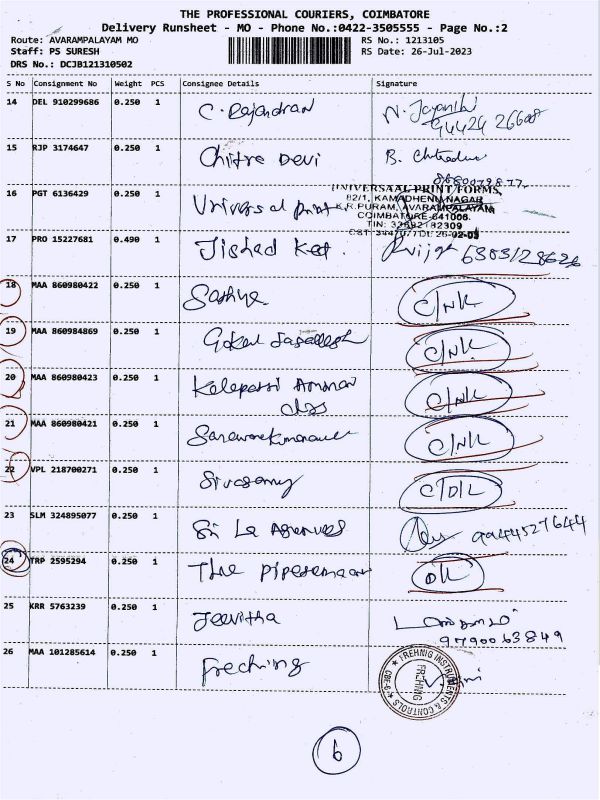 THE PROFESSIONAL COURIERS, COIMBATORE
Delivery Runsheet - MO - Phone No.:0422-3505555 - Page No.:2
Route: AVARAMPALAYAM MO
Staff: PS SURESH
DRS No.: DCJB121310502
RS No.: 1213105
RS Date: 26-Jul-2023
S No Consignment No Weight PCS Consignee Details Signature
14 DEL 910299686 0.250 1 C. Rajendran N. Jayanthi
94424 26608
15 RJP 3174647 0.250 1 Chitra Devi B.
16 PGT 6136429 0.250 1 Universal print
UNIVERSAAL PRINT FORMS,
82/1, KAMADHENU NAGAR
K.R.PURAM, AVARAMPALAYAM
COIMBATORE-641006.
TIN: 33692182309
17 PRO 15227681 0.490 1 6383128626
18 MAA 860980422 0.250 1 Sathya C/NR
19 MAA 860984869 0.250 1 Gokul C/NR
20 MAA 860980423 0.250 1 C/NR
21 MAA 860980421 0.250 1 C/NR
22 VPL 218700271 0.250 1 Sivasamy C/D/L
23 SLM 324895077 0.250 1 Sri 9944527644
24 TRP 2595294 0.250 1 The
25 KRR 5763239 0.250 1 Jeevitha
9790063849
26 MAA 101285614 0.250 1 Freching
TREHNIG INSTRUMENTS & CONTROLS
CBE-6
6